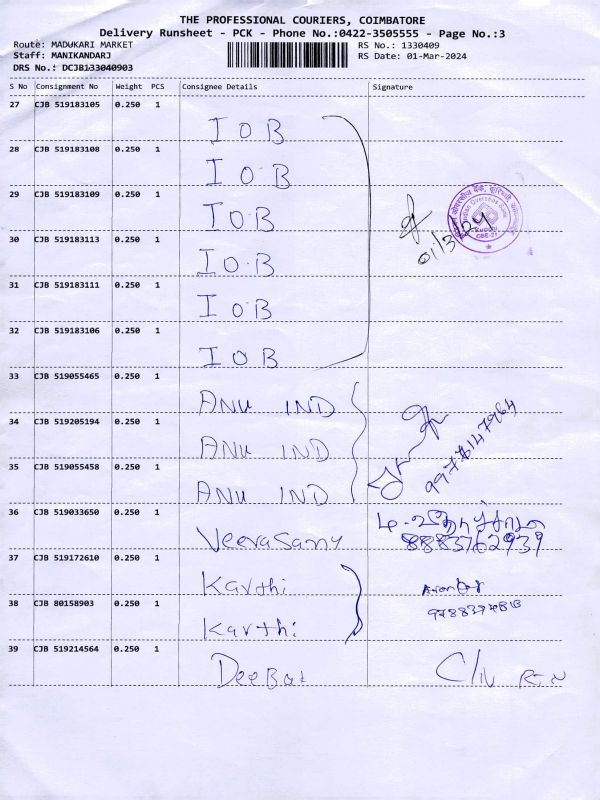 THE PROFESSIONAL COURIERS, COIMBATORE
Delivery Runsheet - PCK - Phone No.:0422-3505555 - Page No.:3
Route: MADUKARI MARKET RS No.: 1330409
Staff: MANIKANDARJ RS Date: 01-Mar-2024
DRS No.: DCJB133040903
S No Consignment No Weight PCS Consignee Details Signature
27 CJB 519183105 0.250 1
IOB
28 CJB 519183108 0.250 1
IOB
29 CJB 519183109 0.250 1
IOB
01/3/24
30 CJB 519183113 0.250 1
IOB
31 CJB 519183111 0.250 1
IOB
32 CJB 519183106 0.250 1
IOB
33 CJB 519055465 0.250 1
ANU IND
34 CJB 519205194 0.250 1
ANU IND
35 CJB 519055458 0.250 1
ANU IND
36 CJB 519033650 0.250 1
Veerasamy 8883762939
37 CJB 519172610 0.250 1
Karthi
38 CJB 80158903 0.250 1
Karthi
39 CJB 519214564 0.250 1
DeeBak